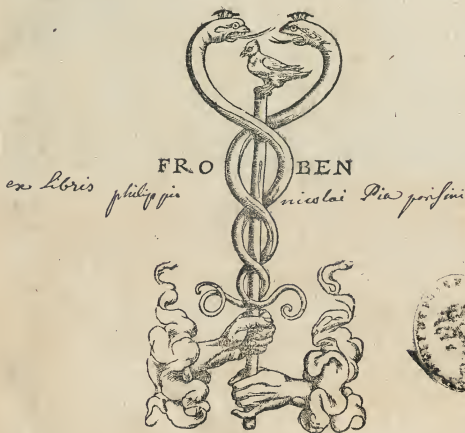 FRO BEN
ex Libris philippi nicolai Pia